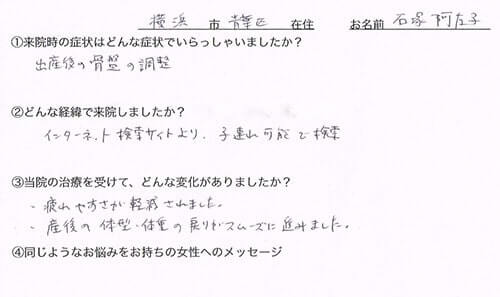 横浜 市 青葉区 在住 お名前 石塚 阿左子
①来院時の症状はどんな症状でいらっしゃいましたか？
出産後の骨盤の調整
②どんな経緯で来院しましたか？
インターネット検索サイトより、子連れ可能で検索
③当院の治療を受けて、どんな変化がありましたか？
・疲れやすさが軽減されました。
・産後の体型・体重の戻りがスムーズに進みました。
④同じようなお悩みをお持ちの女性へのメッセージ